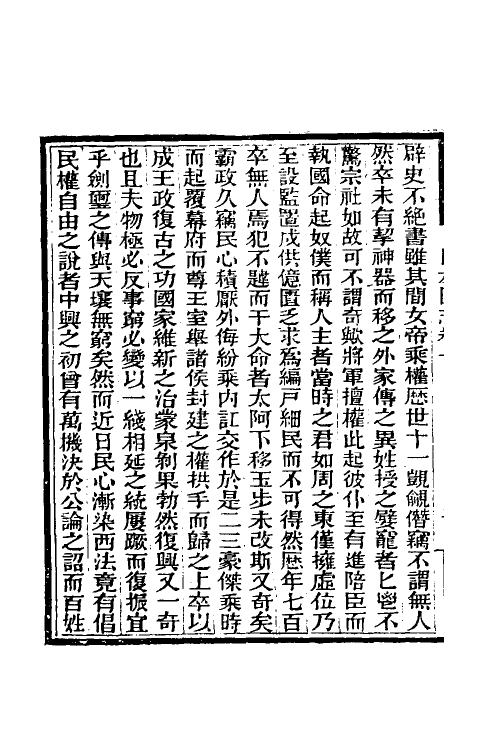 辟史不絕書雖其間女帝乘權歷世十一覬覦僭竊不謂無人
然卒未有挈神器而移之外家傳之異姓授之嬖寵者匕鬯不
驚宗社如故可不謂奇歟將軍擅權此起彼仆至有進陪臣而
執國命起奴僕而稱人主者當時之君如周之東僅擁虛位乃
至設監置戍供億匱乏求爲編戶細民而不可得然歷年七百
卒無人焉犯不韙而干大命者太阿下移玉步未改斯又奇矣
霸政久竊民心積厭外侮紛乘內訌交作於是二三豪傑乘時
而起覆幕府而尊王室舉諸侯封建之權拱手而歸之上卒以
成王政復古之功國家維新之治蒙泉剝果勃然復興又一奇
也且夫物極必反事窮必變以一綫相延之統屢蹶而復振宜
乎劍璽之傳與天壤無窮矣然而近日民心漸染西法竟有倡
民權自由之說者中興之初曾有萬機決於公論之詔而百姓